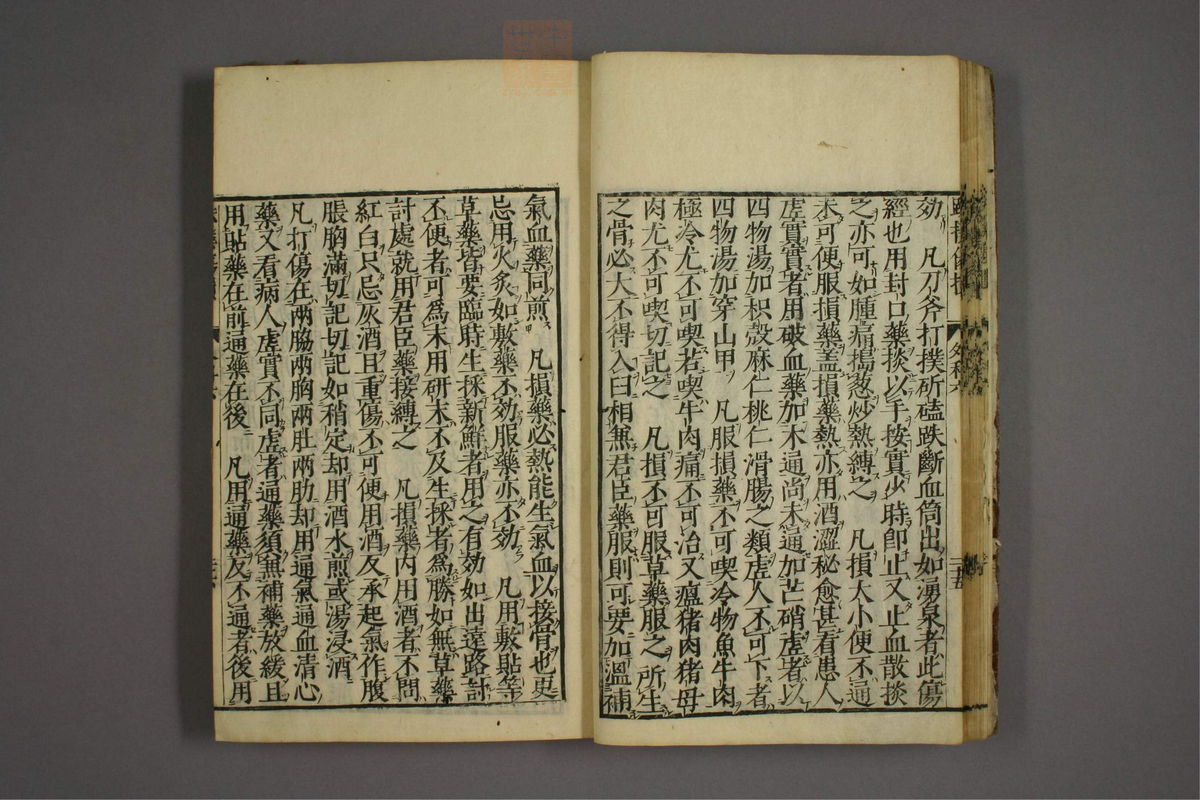 効　凡刀斧打撲斫磕跌斷血筒出如湧泉者此傷
經也用封口藥掞以手按實少時即止又止血散掞
之亦可如腫痛搗葱炒熱縛之　凡損大小便不通
未可便服損藥盖損藥熱亦用酒澀秘愈甚看患人
虛實實者用破血藥加木通尚未通加芒硝虛者以
四物湯加枳殼麻仁桃仁滑腸之類虛人不可下者
四物湯加穿山甲　凡服損藥不可喫冷物魚牛肉
極冷尤不可喫若喫牛肉痛不可治又瘟猪肉猪母
肉尤不可喫切記之　凡損不可服草藥服之所生
之骨必大不得入臼相無君臣藥服則可要加溫補
氣血藥同煎　凡損藥必熱能生氣血以接骨也更
忌用火炙如敷藥不効服藥亦不効　凡用敷貼等
草藥皆要臨時生採新鮮者用之有効如出遠路討
不便者可爲末用研末不及生採者爲勝如無草藥
討處就用君臣藥接縛之　凡損藥內用酒者不問
紅白只忌灰酒且重傷不可便用酒反承起氣作腹
脹胸滿切記切記如稍定却用酒水煎或湯浸酒
凡打傷在兩脇兩胸兩肚兩肋却用通氣通血清心
藥又看病人虛實不同虛者通藥須無補藥放緩且
用貼藥在前通藥在後　凡用通藥反不通者後用
外科
二十五